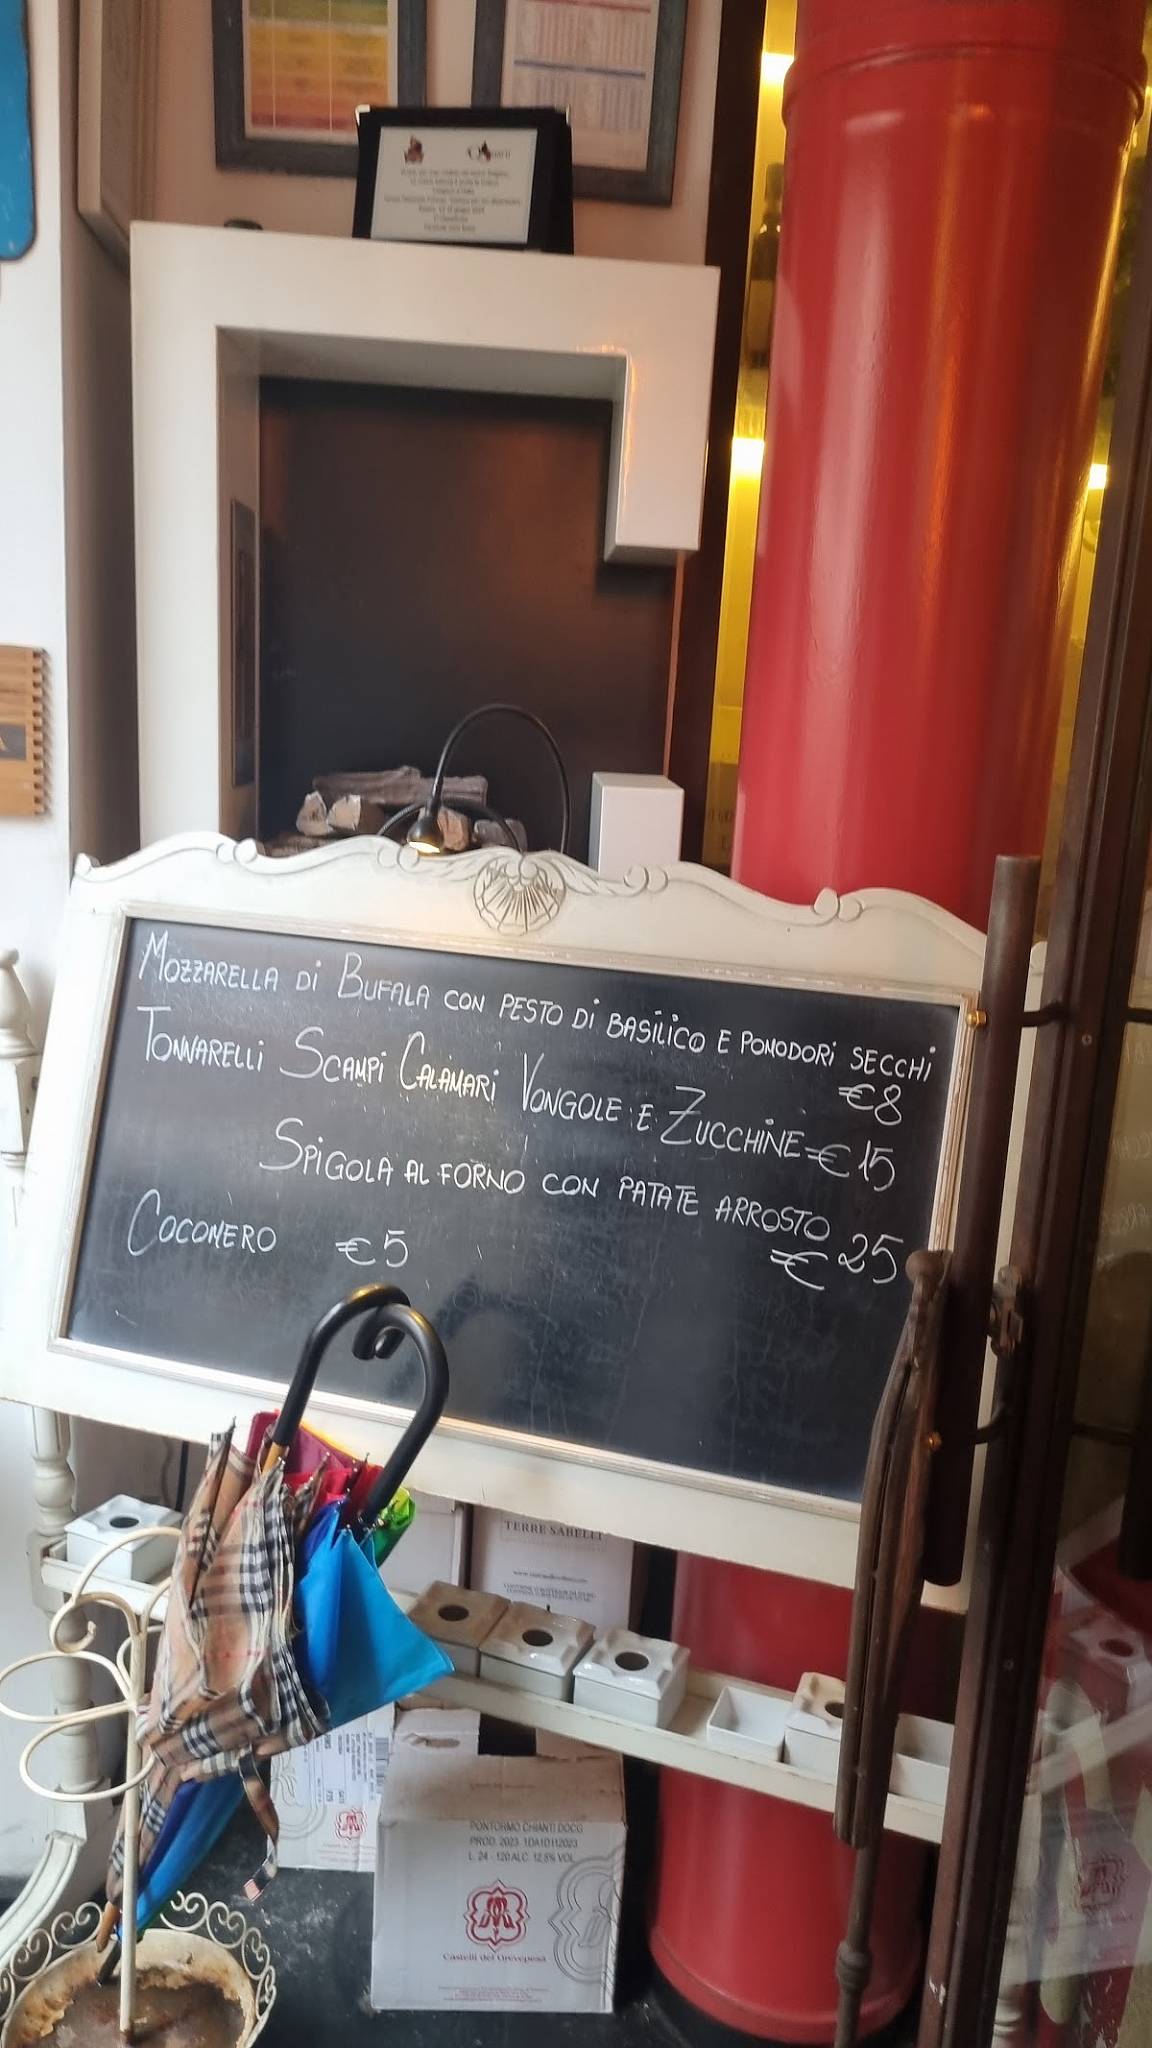 MOZZARELLA DI BUFALA CON PESTO DI BASILICO E POMODORI SECCHI
€8
TONNARELLI SCAMPI CALAMARI VONGOLE E ZUCCHINE €15
SPIGOLA AL FORNO CON PATATE ARROSTO
€ 25
COCOMERO €5
TERRE SABELLI
PONTORMO CHIANTI DOCG
PROD. 2023 1DA1D112023
L. 24 - 120 ALC. 12,5% VOL
Castelli del Grevepesa